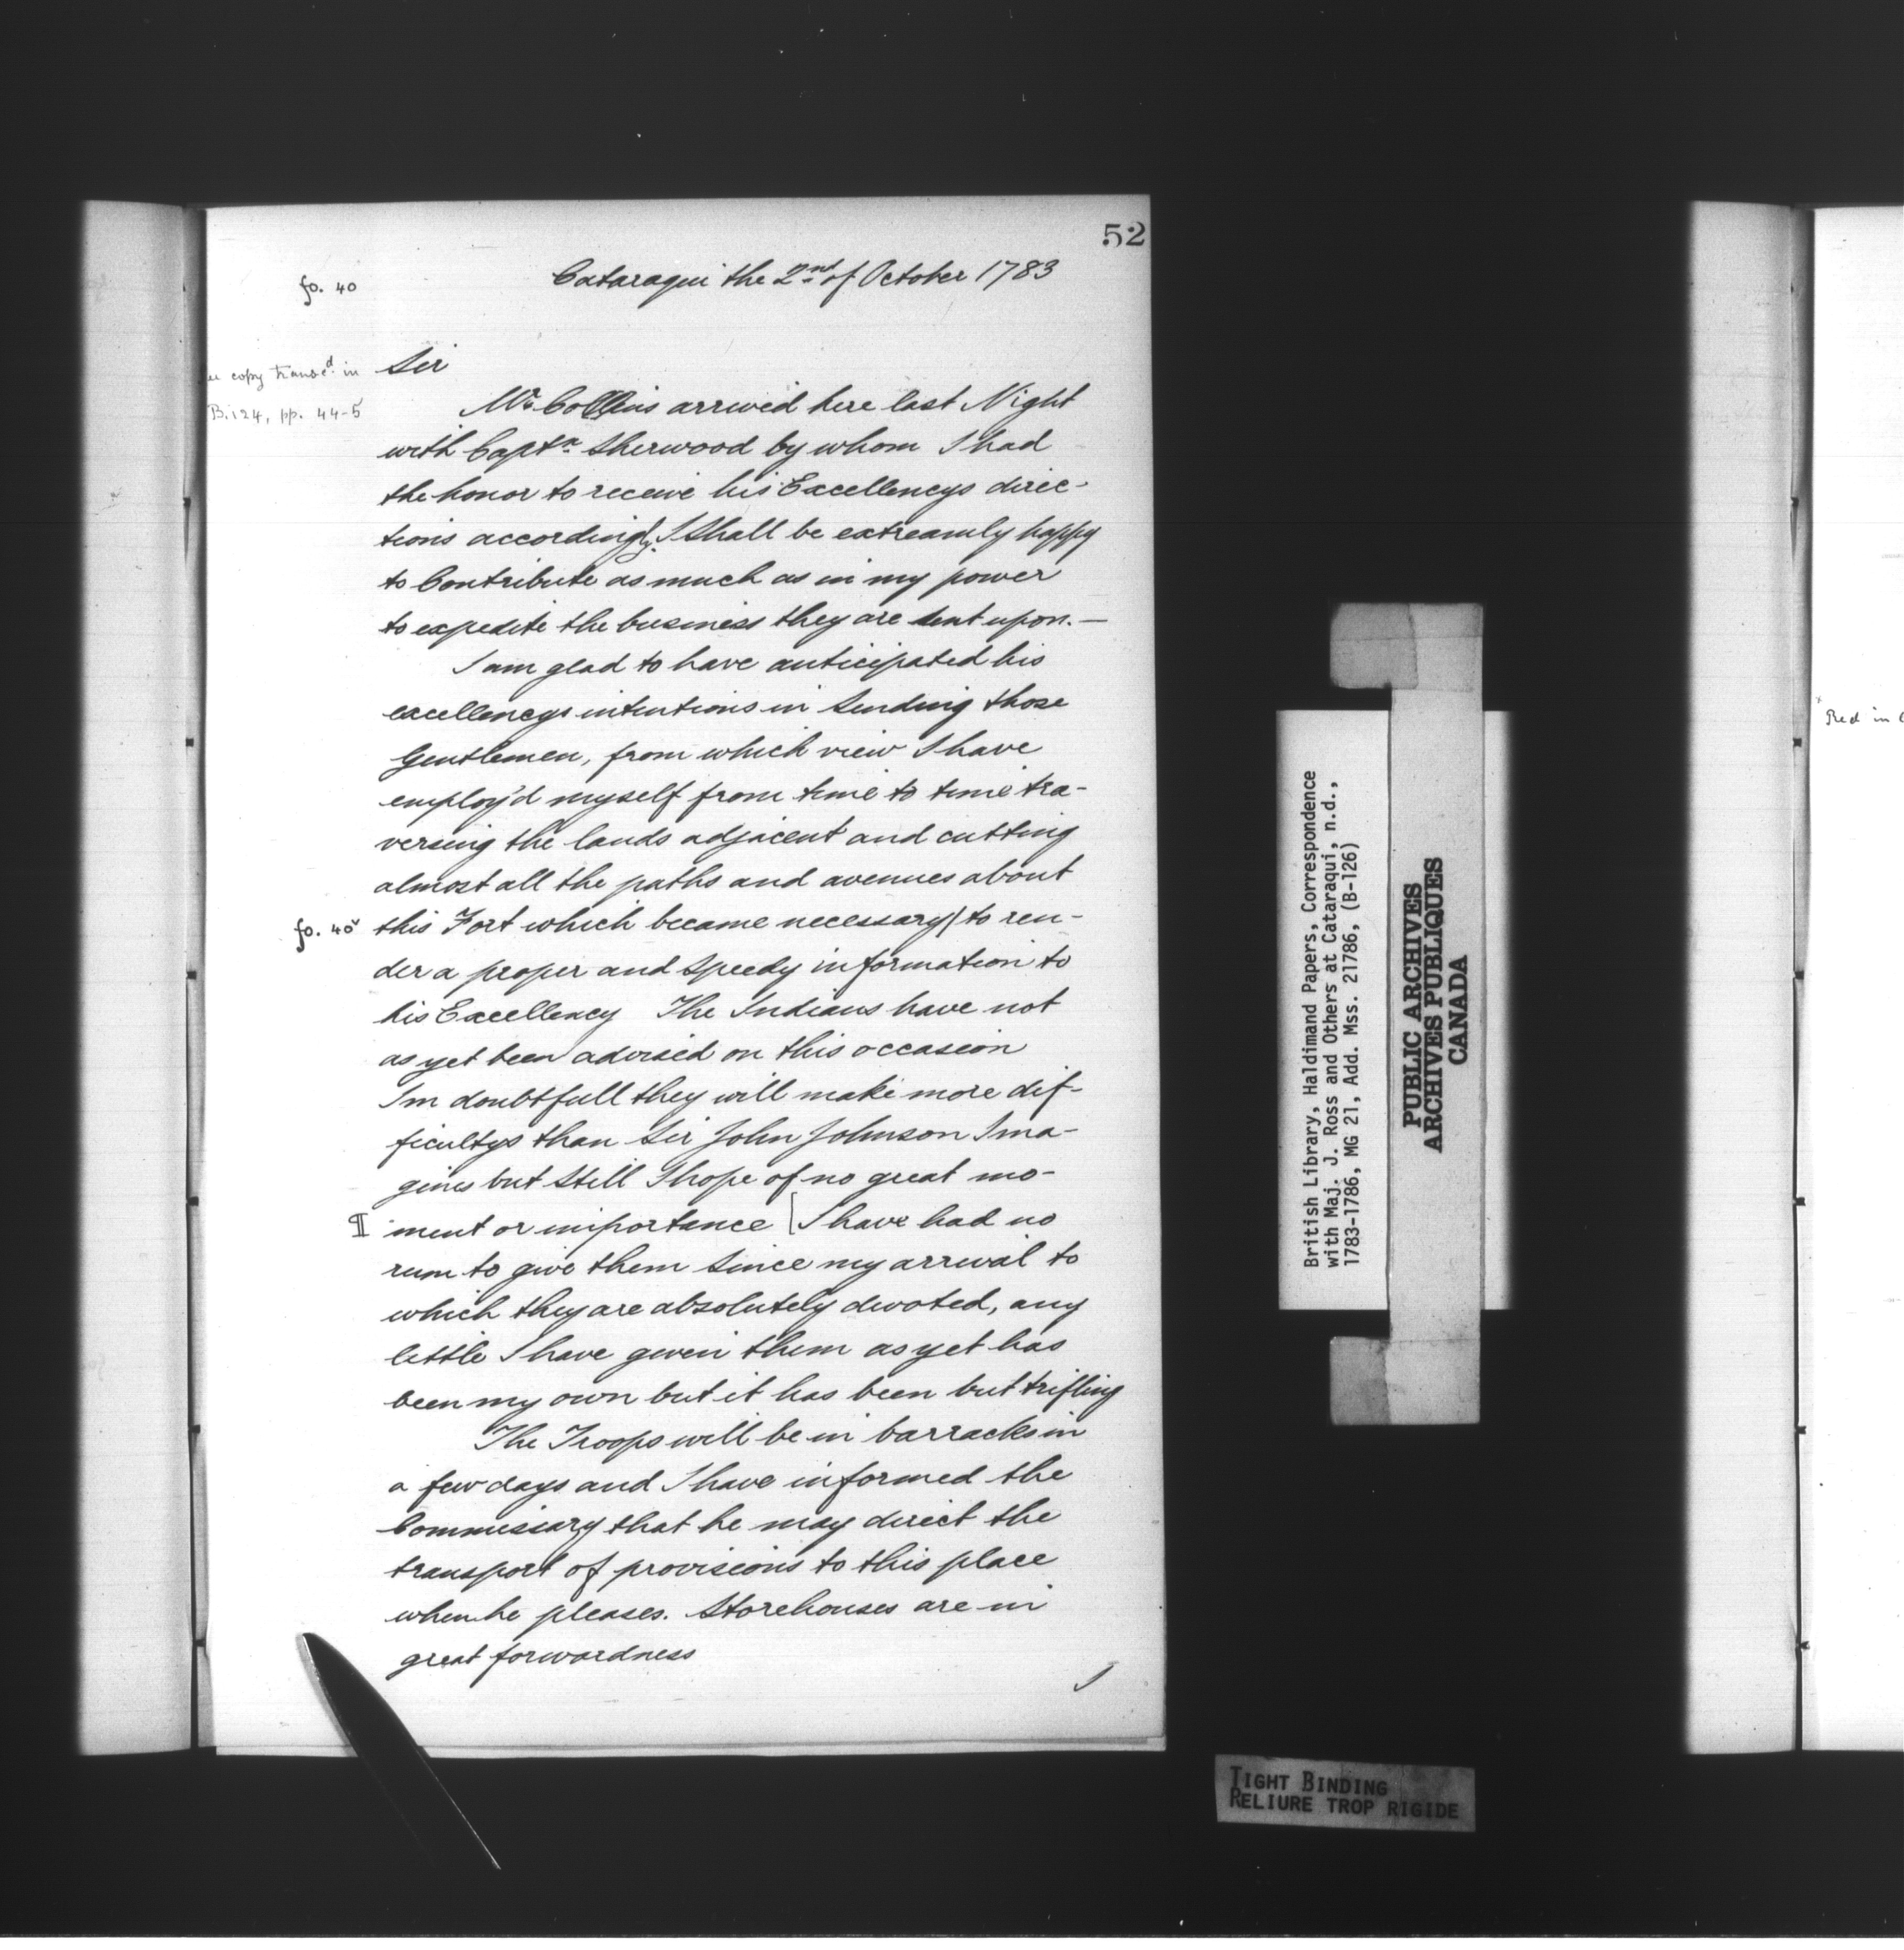 52
fo. 40
Cataraqui the 2nd of October 1783
copy transcd in
B.124, pp. 44-5
Sir
Mr. Collins arrived here last Night
with Captn Sherwood by whom I had
the honor to receive his Excellencys direc-
tions accordingly. I Shall be extreamly happy
to Contribute as much as in my power
to expedite the business they are sent upon.—
I am glad to have anticipated his
excellencys intentions in Sending those
Gentlemen, from which view I have
employ'd myself from time to time tra-
versing the lands adjacent and cutting
almost all the paths and avenues about
fo. 40v
this Fort which became necessary/ to ren-
der a proper and Speedy information to
his Excellency The Indians have not
as yet been advised on this occasion
I'm doubtfull they will make more dif-
ficultys than Sir John Johnson Ima-
gines but Still I hope of no great mo-
¶ ment or importance [I have had no
rum to give them Since my arrival to
which they are absolutely devoted, any
little I have given them as yet has
been my own but it has been but trifling
The Troops will be in barracks in
a few days and I have informed the
Commissary that he may direct the
transport of provisions to this place
when he pleases. Storehouses are in
great forwardness
I
British Library, Haldimand Papers, Correspondence
with Maj. J. Ross and Others at Cataraqui, n.d.,
1783-1786, MG 21, Add. Mss. 21786, (B-126)
PUBLIC ARCHIVES
ARCHIVES PUBLIQUES
CANADA
TIGHT BINDING
RELIURE TROP RIGIDE
in